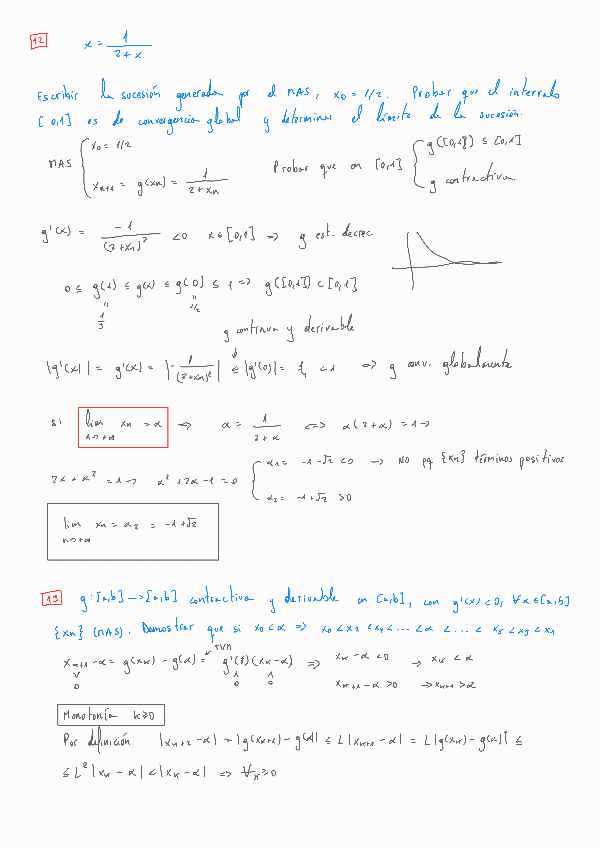 12 x = 1/(2+x)
Escribir la sucesión generada por el MAS, x₀ = 1/2. Probar que el intervalo
[0,1] es de convergencia global y determinar el límite de la sucesión.
MAS { x₀ = 1/2
xₙ₊₁ = g(xₙ) = 1/(2+xₙ)
Probar que en [0,1] { g([0,1]) ⊆ [0,1]
g contractiva
g'(x) = -1/(2+xₙ)² <0 x∈[0,1] → g est. decrec.
0 ≤ g(1) ≤ g(x) ≤ g(0) ≤ 1 => g([0,1]) ⊂ [0,1]
" "
1/3 1/2
g continua y derivable
|g'(x)| = g'(x) = |-1/(2+xₙ)²| ≤ |g'(0)| = 1/4 <1 => g conv. globalmente
si lim xₙ = α => α = 1/(2+α) <=> α(2+α) = 1 →
n→+∞
2α + α² = 1 → α² + 2α - 1 = 0 { α₁ = -1-√2 <0 → No pq {xₙ} términos positivos
α₂ = -1+√2 >0
lim xₙ = α₂ = -1+√2
n→+∞
13 g: [a,b] → [a,b] contractiva y derivable en [a,b], con g'(x)<0, ∀x∈[a,b]
{xₙ} (MAS). Demostrar que si x₀<α => x₀<x₂<x₄<...<α<...<x₅<x₃<x₁
TVM
xₖ₊₁-α = g(xₖ) - g(α) = g'(ξ)(xₖ-α) => xₖ-α <0 → xₖ<α
xₖ₊₁-α >0 → xₖ₊₁>α
Monotonía k≥0
Por definición |xₖ₊₂-α| = |g(xₖ₊₁) - g(α)| ≤ L|xₖ₊₁-α| = L|g(xₖ)-g(α)| ≤
≤ L²|xₖ-α| < |xₖ-α| => ∀ₖ≥0